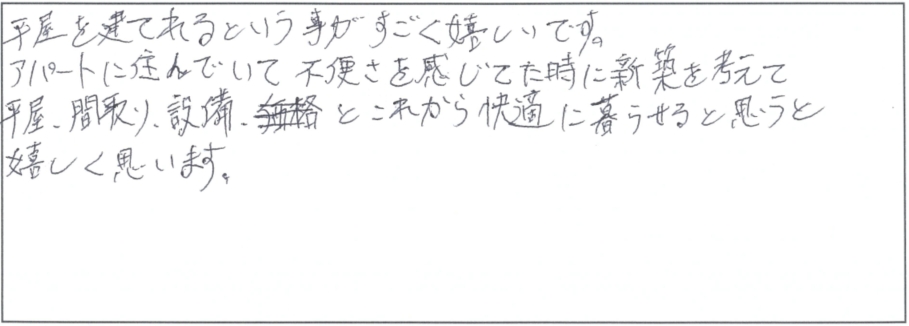 平屋を建てれるという事がすごく嬉しいです。
アパートに住んでいて不便さを感じてた時に新築を考えて
平屋、間取り、設備、価格とこれから快適に暮らせると思うと
嬉しく思います。